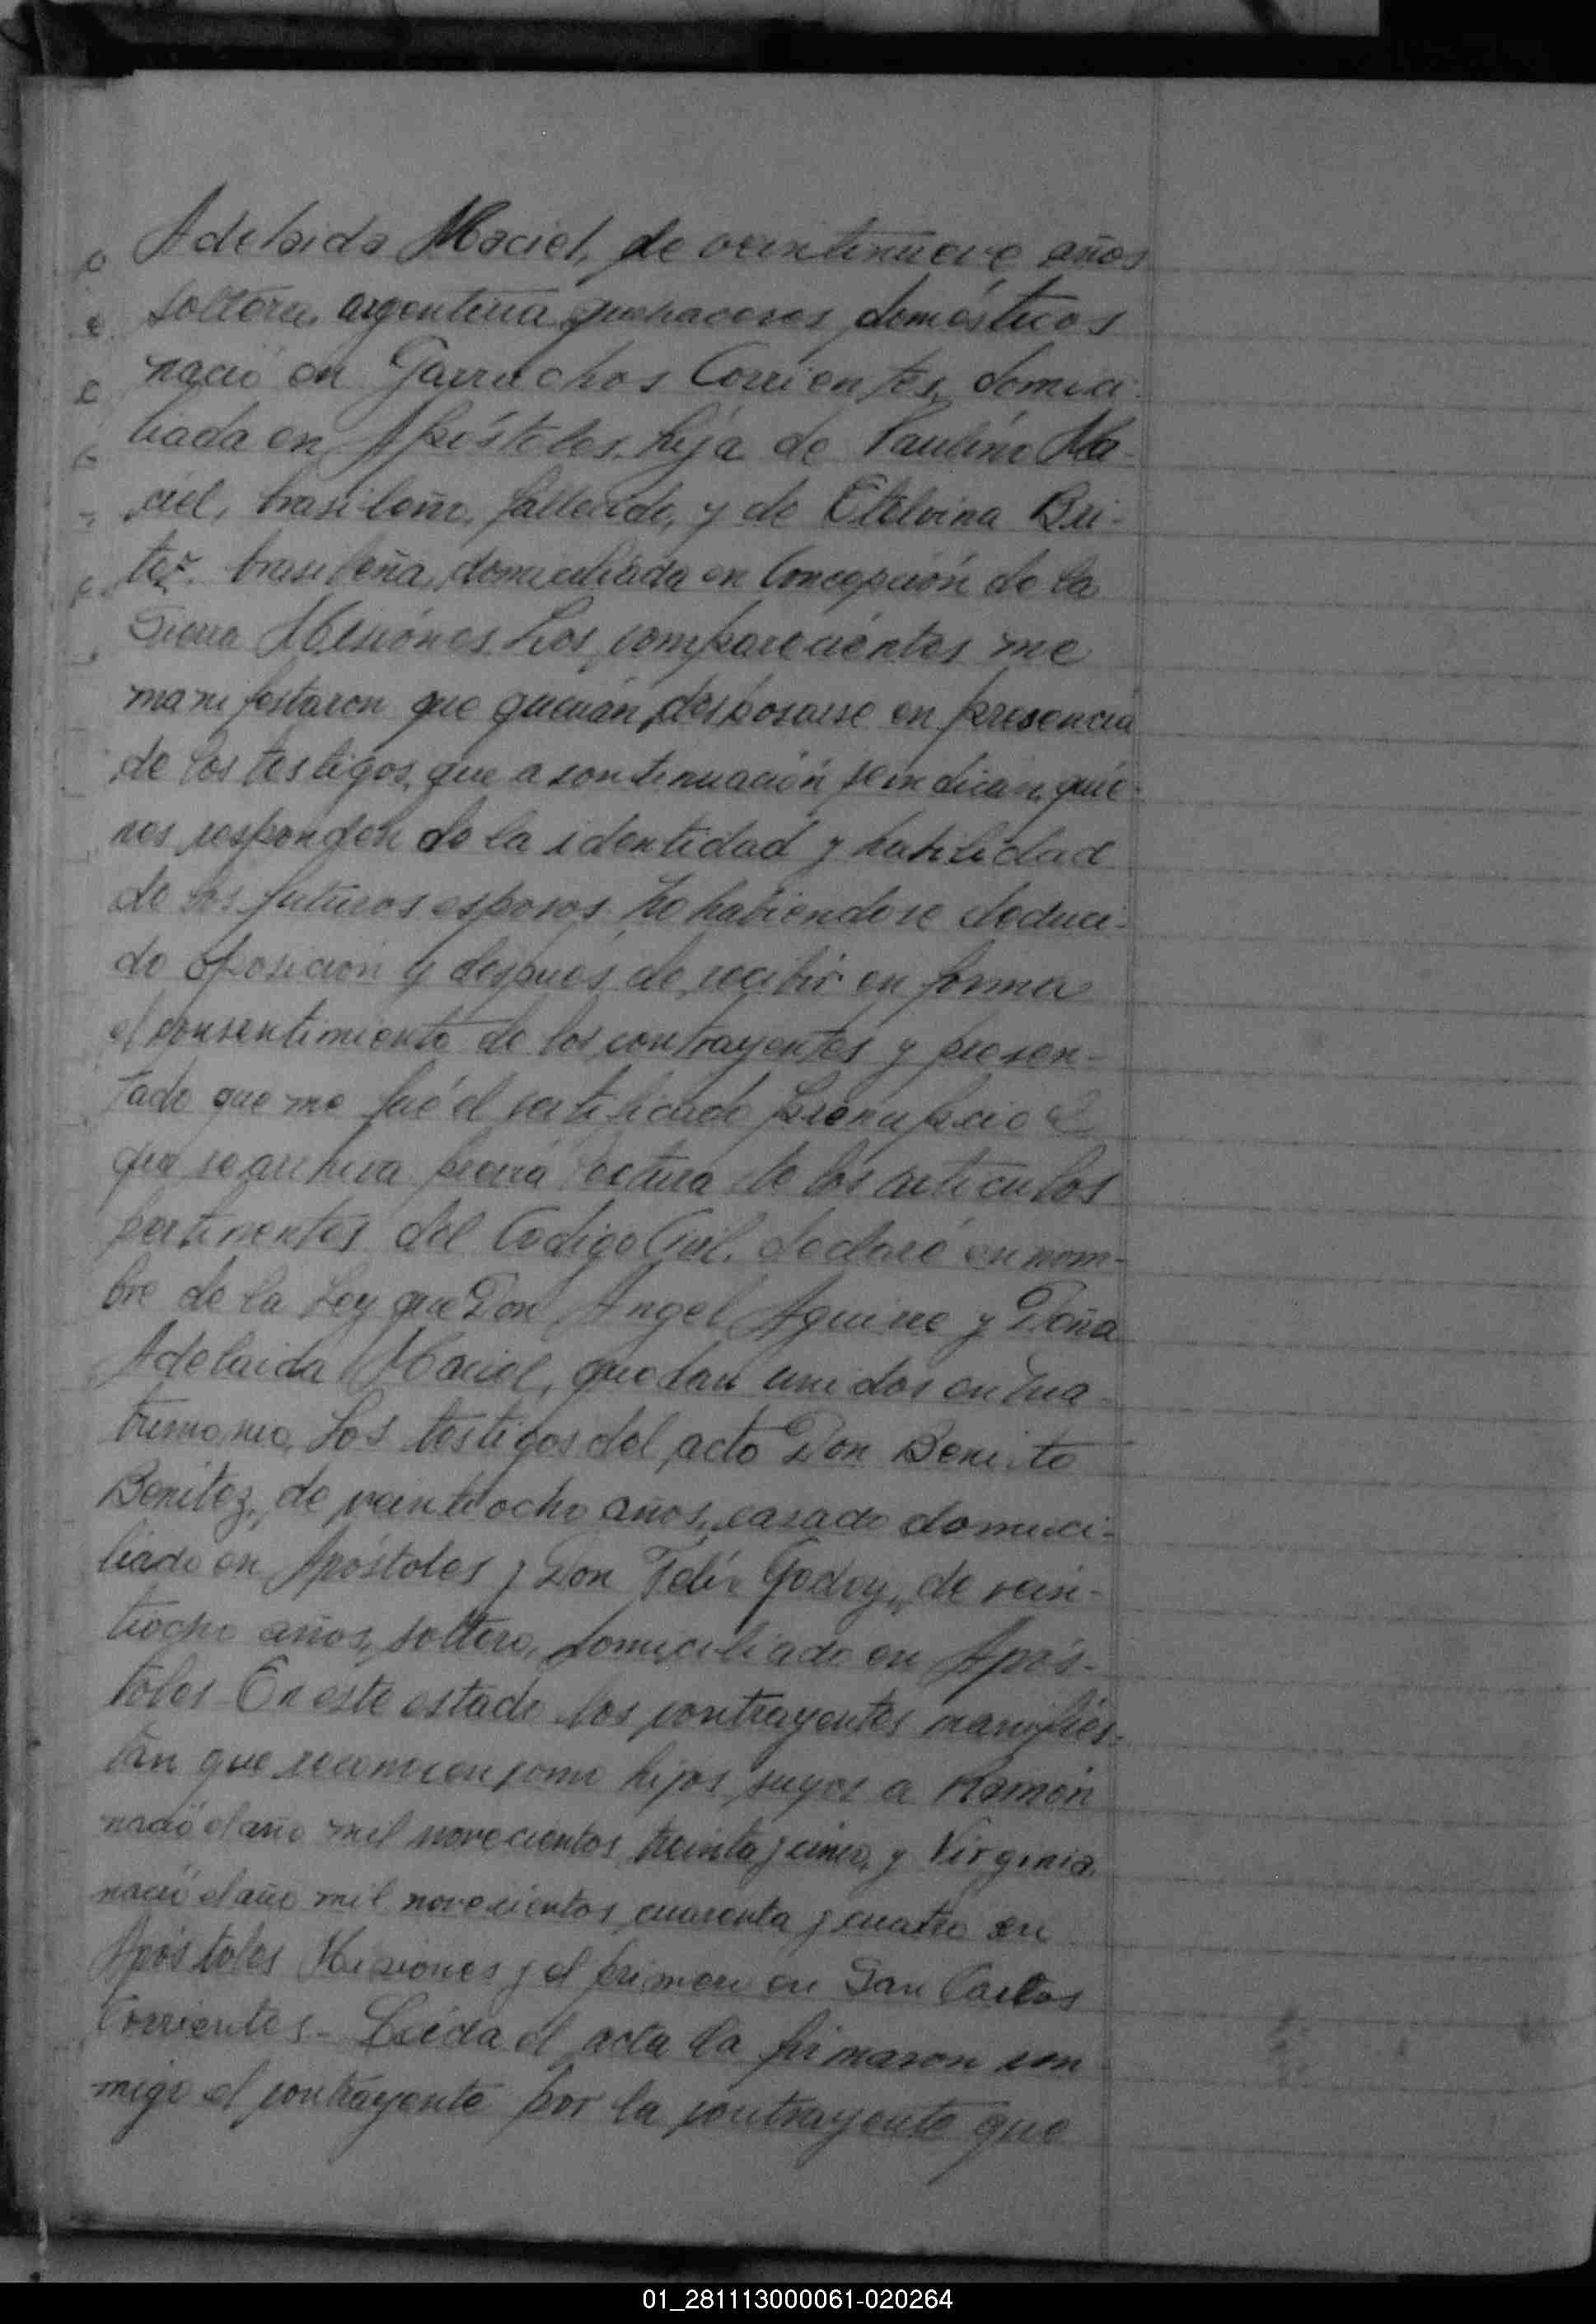 Adelaida Maciel, de veintinueve años
soltera, argentina, quehaceres domésticos
nació en Garruchos Corrientes, domici-
liada en Apóstoles, hija de Paulino Ma-
ciel, brasileño, fallecido, y de Etelvina Bri-
tez, brasileña, domiciliada en Concepción de la
Sierra Misiones. Los comparecientes me
manifestaron que querían desposarse en presencia
de los testigos que a continuación se indican, quie-
nes responden de la identidad y habilidad
de los futuros esposos. No habiendose deduci-
do oposición y después de recibir en forma
el consentimiento de los contrayentes y presen-
tado que me fué el certificado prenupcial
que se archiva previa lectura de los artículos
pertinentes del Codigo Civil, declaré en nom-
bre de la Ley que Don Angel Aguirre y Doña
Adelaida Maciel, quedan unidos en ma-
trimonio. Los testigos del acto Don Benito
Benitez, de veintiocho años, casado domici-
liado en Apóstoles y Don Felix Godoy, de vein-
tiocho años, soltero, domiciliado en Após-
toles - En este estado los contrayentes manifies-
tan que reconocen como hijos suyos a Ramón
nació el año mil novecientos treinta y cinco, y Virginia,
nació el año mil novecientos cuarenta y cuatro en
Apóstoles Misiones y el primero en San Carlos
Corrientes - Leída el acta la firmaron con
migo el contrayente por la contrayente que
01_281113000061-020264